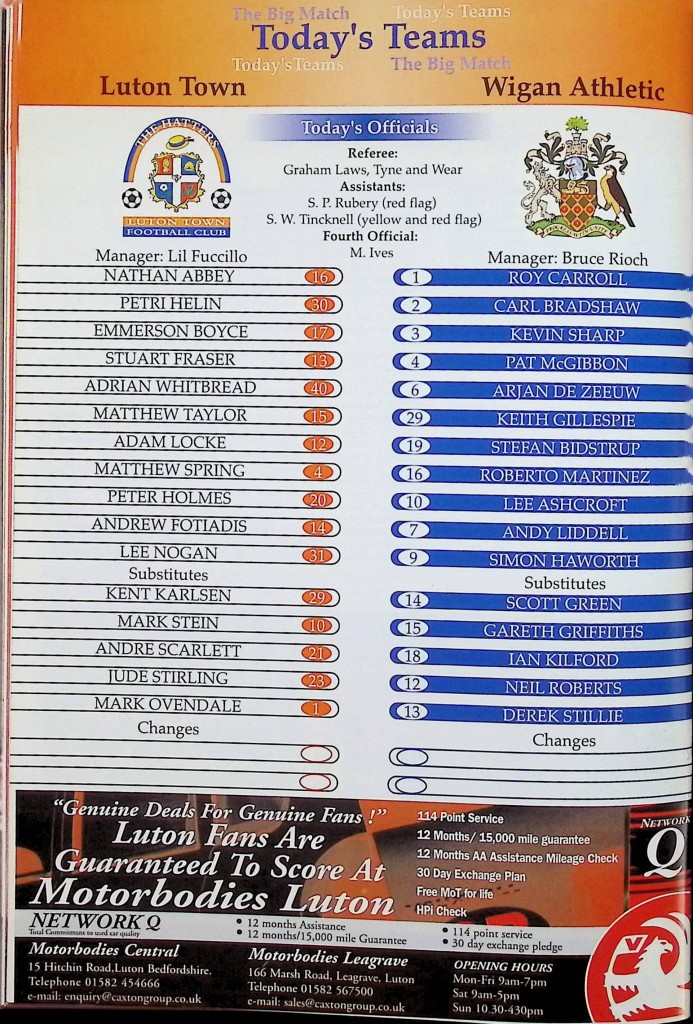 The Big Match
Today's Teams
Today's Teams
Today's Teams
The Big Match
Luton Town
Wigan Athletic
THE HATTERS
LUTON TOWN
FOOTBALL CLUB
Today's Officials
Referee:
Graham Laws, Tyne and Wear
Assistants:
S. P. Rubery (red flag)
S. W. Tincknell (yellow and red flag)
Fourth Official:
M. Ives
Manager: Lil Fuccillo
NATHAN ABBEY 16
PETRI HELIN 30
EMMERSON BOYCE 17
STUART FRASER 13
ADRIAN WHITBREAD 40
MATTHEW TAYLOR 15
ADAM LOCKE 12
MATTHEW SPRING 4
PETER HOLMES 20
ANDREW FOTIADIS 14
LEE NOGAN 31
Substitutes
KENT KARLSEN 29
MARK STEIN 10
ANDRE SCARLETT 21
JUDE STIRLING 23
MARK OVENDALE 1
Changes
Manager: Bruce Rioch
1 ROY CARROLL
2 CARL BRADSHAW
3 KEVIN SHARP
4 PAT McGIBBON
6 ARJAN DE ZEEUW
29 KEITH GILLESPIE
19 STEFAN BIDSTRUP
16 ROBERTO MARTINEZ
10 LEE ASHCROFT
7 ANDY LIDDELL
9 SIMON HAWORTH
Substitutes
14 SCOTT GREEN
15 GARETH GRIFFITHS
18 IAN KILFORD
12 NEIL ROBERTS
13 DEREK STILLIE
Changes
"Genuine Deals For Genuine Fans !"
Luton Fans Are
Guaranteed To Score At
Motorbodies Luton
114 Point Service
12 Months/ 15,000 mile guarantee
12 Months AA Assistance Mileage Check
30 Day Exchange Plan
Free MoT for life
HPi Check
NETWORK
Q
NETWORK Q
Total Commitment to used car quality
• 12 months Assistance
• 12 months/15,000 mile Guarantee
• 114 point service
• 30 day exchange pledge
Motorbodies Central
15 Hitchin Road,Luton Bedfordshire.
Telephone 01582 454666
e-mail: enquiry@caxtongroup.co.uk
Motorbodies Leagrave
166 Marsh Road, Leagrave, Luton
Telephone 01582 567500
e-mail: sales@caxtongroup.co.uk
OPENING HOURS
Mon-Fri 9am-7pm
Sat 9am-5pm
Sun 10.30-430pm